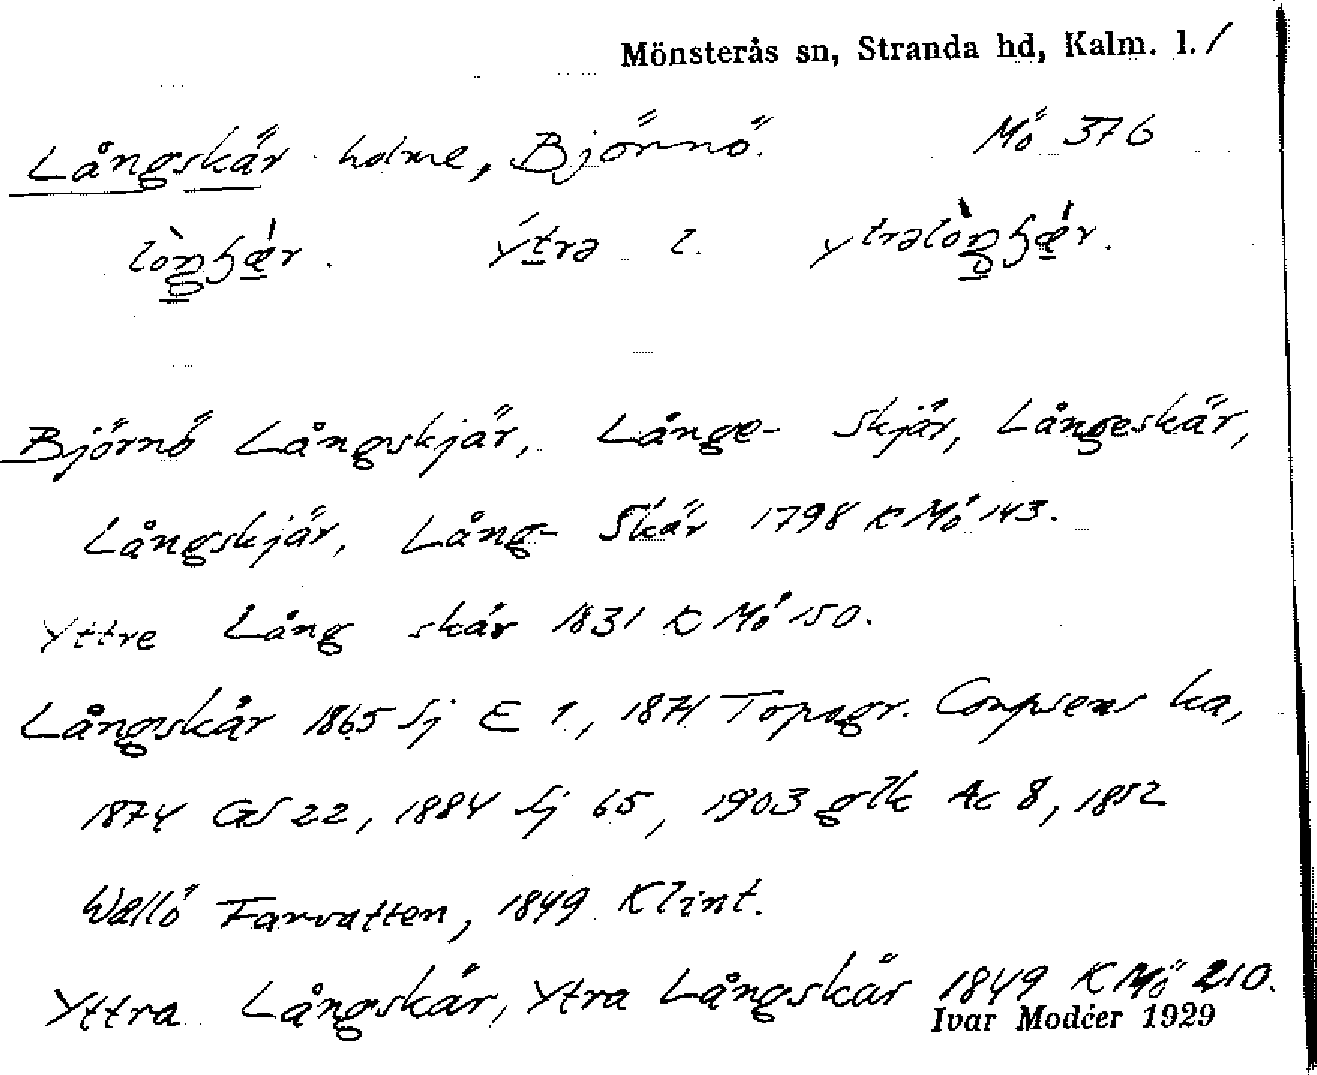 Mönsterås sn, Stranda hd, Kalm. l. /
Långskär holme, Björnö. Mö 376
Ytrə l.
Björnö Långskjär, Långe- Skjär, Långeskär,
Långskjär, Lång- Skär 1798 K Mö 143.
Yttre Lång skär 1831 K Mö 150.
Långskär 1865 Sj E 1, 1871 Topogr. Corpsens ka,
1874 GS 22, 1884 Sj 65, 1903 glk Ac 8, 1852
Wållö Farvatten, 1849 Klint.
Yttra Långskär, Ytra Långskär 1849 K Mö 210.
Ivar Modéer 1929